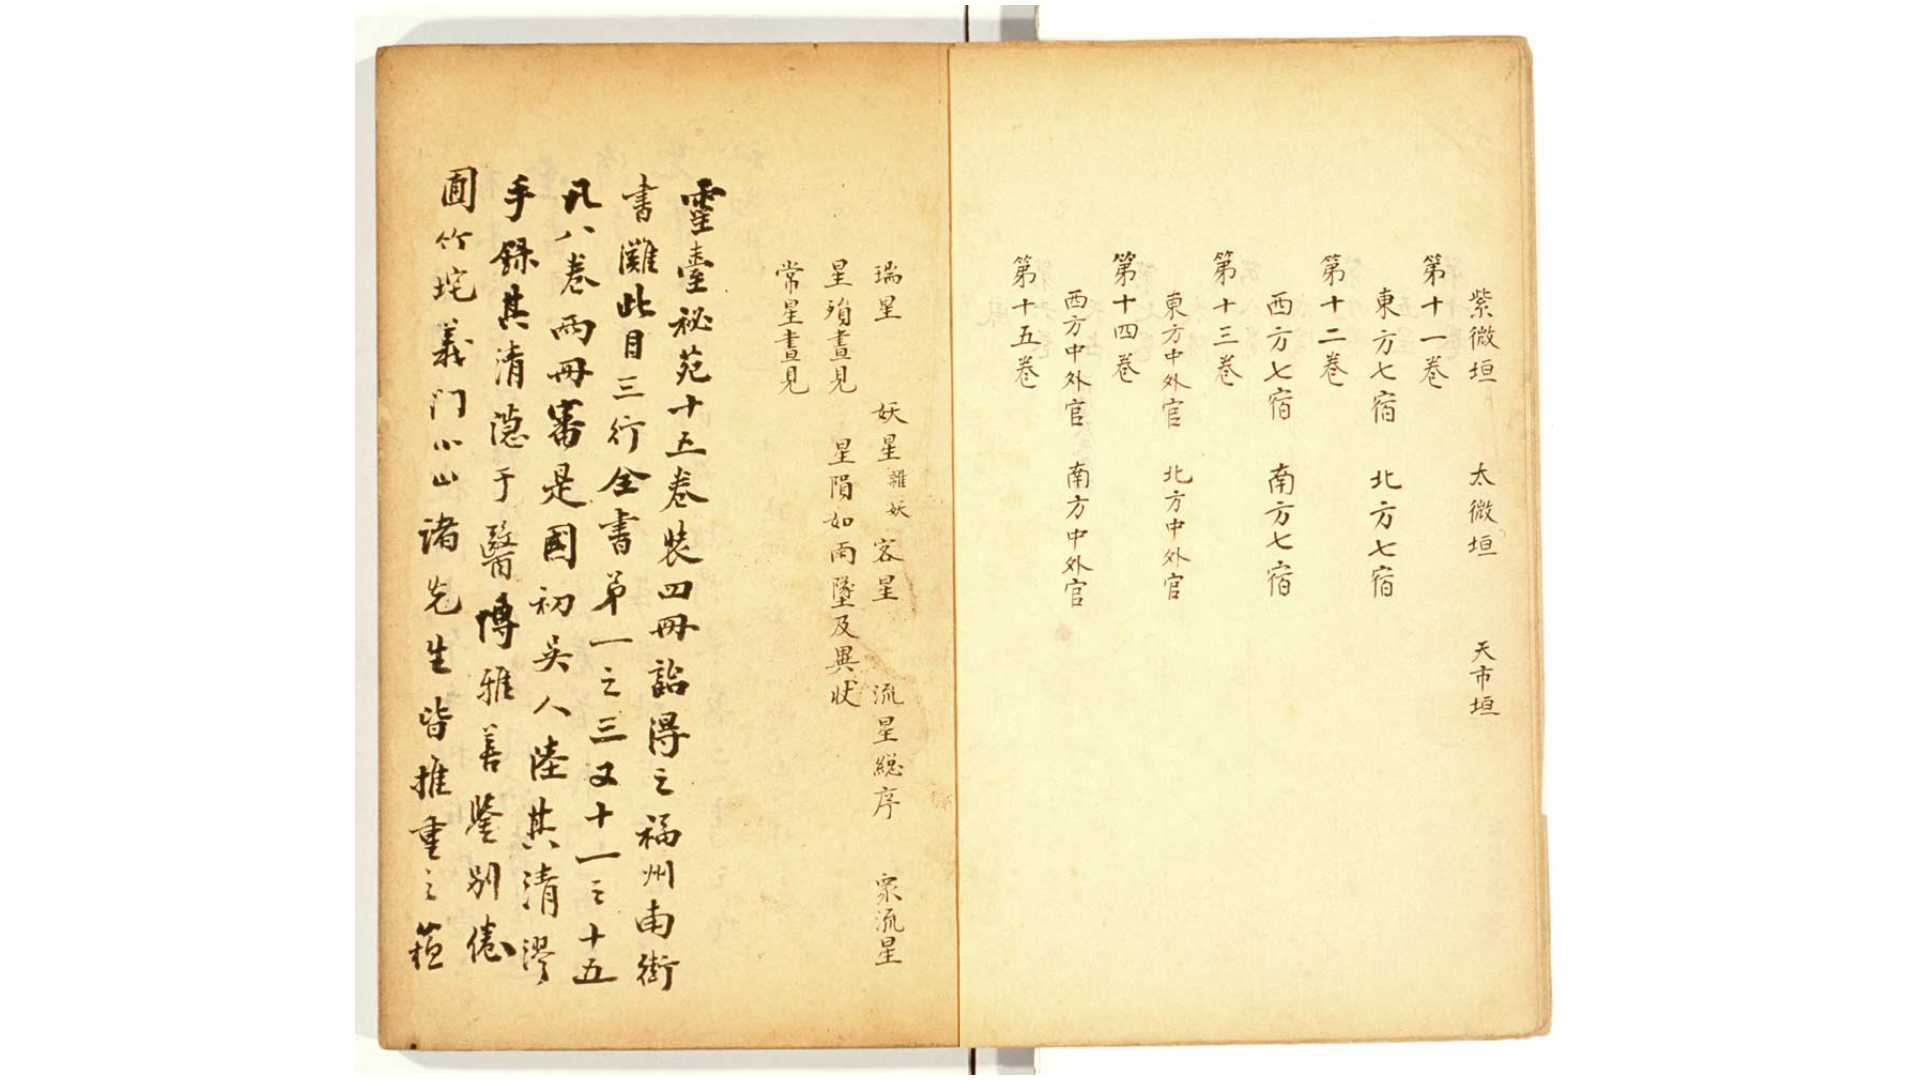 紫微垣 太微垣 天市垣
第十一卷
東方七宿 北方七宿
西方七宿 南方七宿
第十二卷
第十三卷
東方中外官 北方中外官
第十四卷
西方中外官 南方中外官
第十五卷
瑞星 妖星 雜妖 客星 流星總序 衆流星
星殞晝見 星隕如雨墜及異狀
常星晝見
靈臺祕苑十五卷裝四冊詒得之福州南街
書灘此目三行全書弟一之三又十一之十五
凡八卷兩冊審是國初吳人陸其清漻
手録其清隱于醫博雅善鑒別倦
圃竹垞義門小山諸先生皆推重之蒩